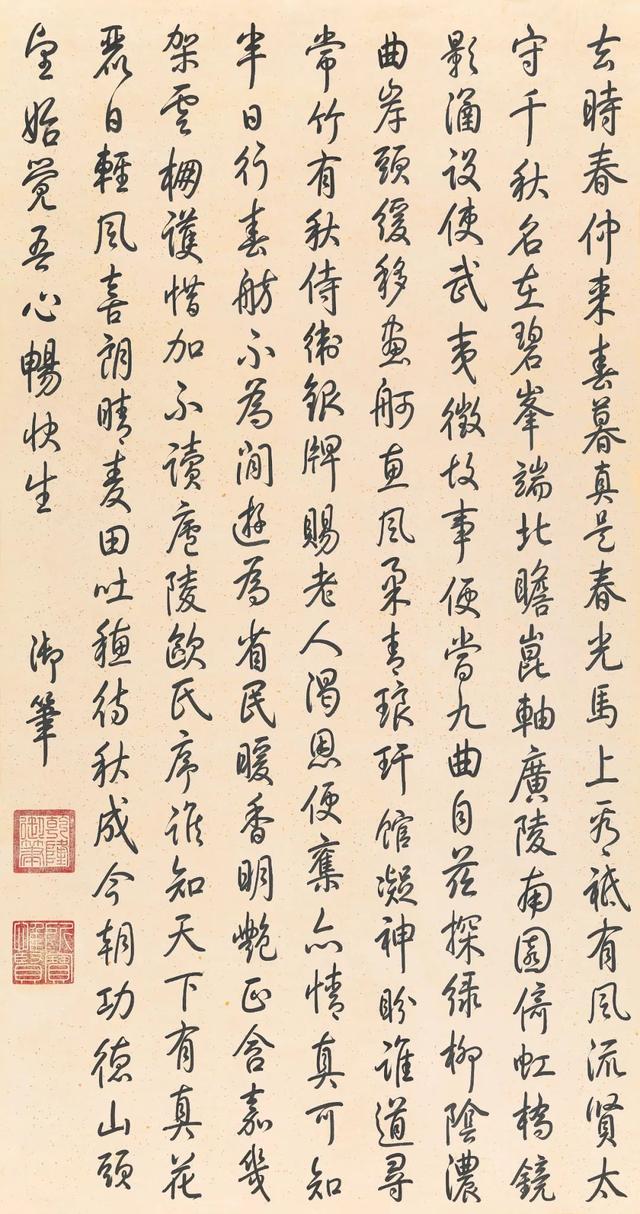 去時春仲来春暮真是春光馬上看祗有風流賢太
守千秋名在碧峯端北瞻崑軸廣陵南園倚虹橋鏡
影涵設使武夷徵故事便當九曲自茲探綠柳陰濃
曲岸頭緩移畫舸惠風柔青琅玕館凝神盼誰道尋
常竹有秋侍衛銀牌賜老人渴恩便奪亦情真可知
半日行春舫不為閒遊為省民暖香明艷正含嘉幾
架雲棚護惜加不讀廬陵歐氏序誰知天下有真花
麗日輕風喜朗晴麦田吐穗待秋成今朝功德山頭
望始覺吾心暢快生 御筆
乾隆御筆
所寶惟賢